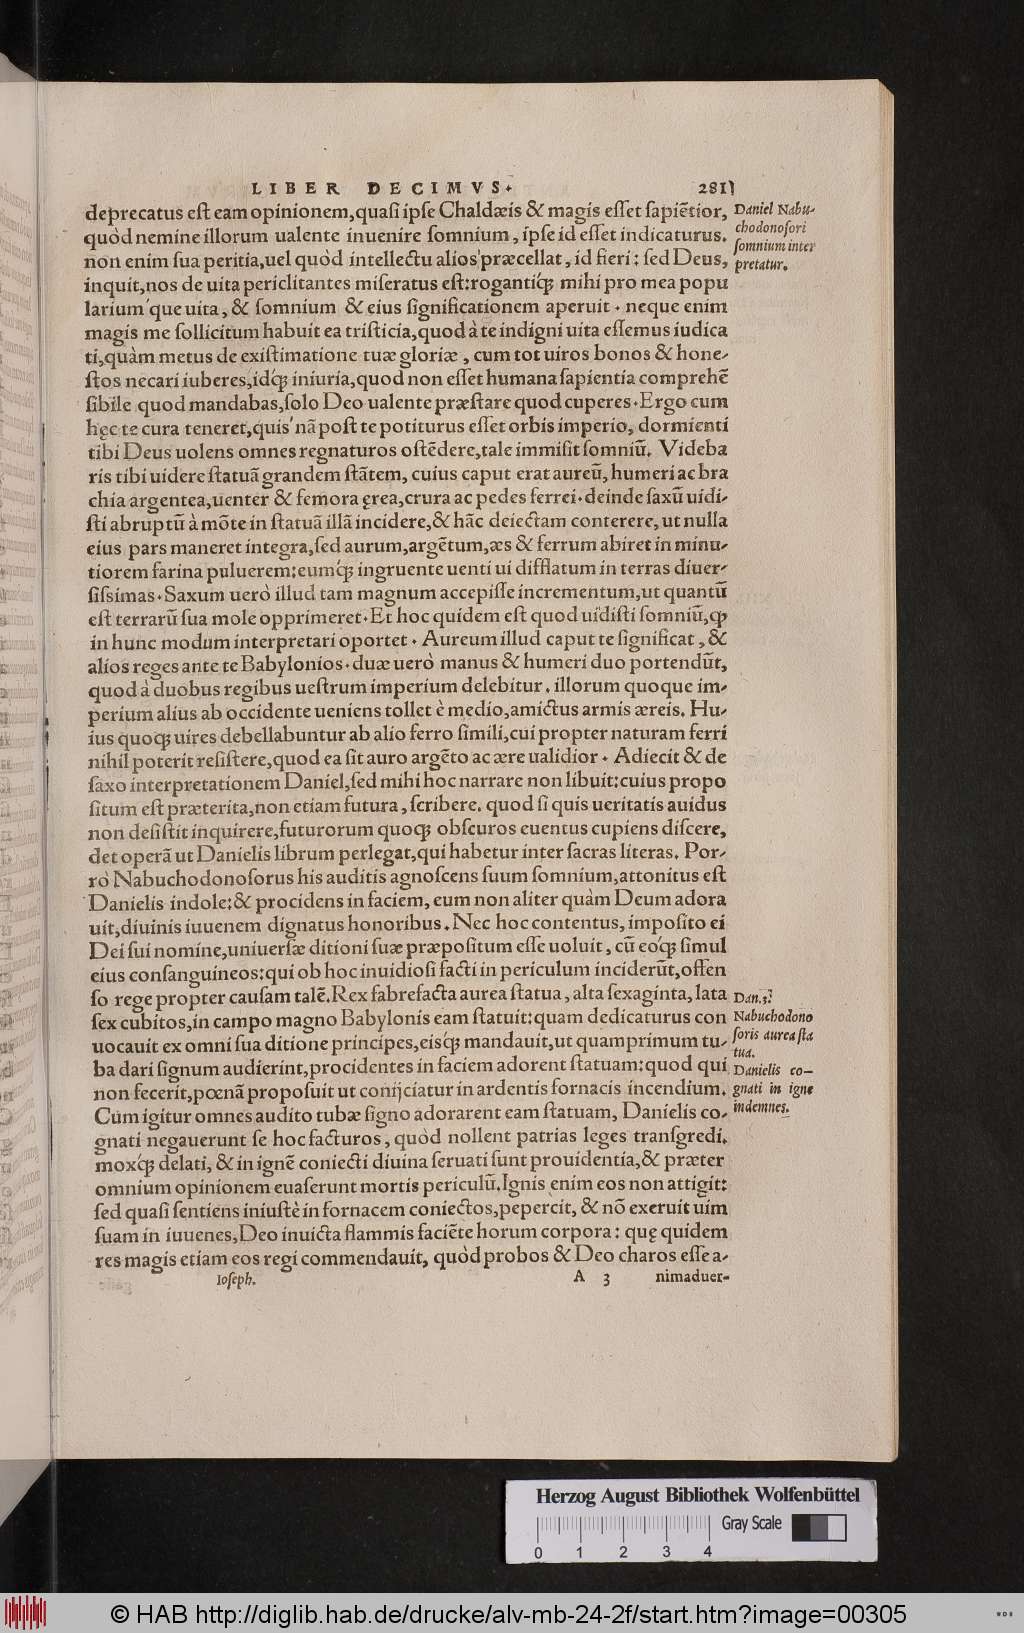 LIBER DECIMVS. 281
deprecatus eſt eam opinionem, quaſi ipſe Chaldæis & magis eſſet ſapiẽtior,
quòd nemine illorum ualente inuenire ſomnium, ipſe id eſſet indicaturus.
non enim ſua peritia, uel quòd intellectu alios præcellat, id fieri: ſed Deus,
inquit, nos de uita periclitantes miſeratus eſt: rogantiq́ꝫ mihi pro mea popu
larium que uita, & ſomnium & eius ſignificationem aperuit. neque enim
magis me ſollicitum habuit ea triſticia, quod à te indigni uita eſſemus iudica
ti, quàm metus de exiſtimatione tuæ gloriæ, cum tot uiros bonos & hone-
ſtos necari iuberes, idq́ꝫ iniuria, quod non eſſet humana ſapientia comprehẽ
ſibile quod mandabas, ſolo Deo ualente præſtare quod cuperes. Ergo cum
hęc te cura teneret, quis nã poſt te potiturus eſſet orbis imperio, dormienti
tibi Deus uolens omnes regnaturos oſtẽdere, tale immiſit ſomniũ. Videba
ris tibi uidere ſtatuã grandem ſtãtem, cuius caput erat aureũ, humeri ac bra
chia argentea, uenter & femora ęrea, crura ac pedes ferrei. deinde ſaxũ uidi-
ſti abruptũ à mõte in ſtatuã illã incidere, & hãc deiectam conterere, ut nulla
eius pars maneret integra, ſed aurum, argẽtum, æs & ferrum abiret in minu-
tiorem farina puluerem: eumq́ꝫ ingruente uenti ui difflatum in terras diuer-
ſiſsimas. Saxum uerò illud tam magnum accepiſſe incrementum, ut quantũ
eſt terrarũ ſua mole opprimeret. Et hoc quidem eſt quod uidiſti ſomniũ, qꝫ
in hunc modum interpretari oportet. Aureum illud caput te ſignificat, &
alios reges ante te Babylonios. duæ uerò manus & humeri duo portendũt,
quod à duobus regibus ueſtrum imperium delebitur. illorum quoque im-
perium alius ab occidente ueniens tollet è medio, amictus armis æreis. Hu-
ius quoqꝫ uires debellabuntur ab alio ferro ſimili, cui propter naturam ferri
nihil poterit reſiſtere, quod ea ſit auro argẽto ac ære ualidior. Adiecit & de
ſaxo interpretationem Daniel, ſed mihi hoc narrare non libuit: cuius propo
ſitum eſt præterita, non etiam futura, ſcribere. quod ſi quis ueritatis auidus
non deſiſtit inquirere, futurorum quoqꝫ obſcuros euentus cupiens diſcere,
det operã ut Danielis librum perlegat, qui habetur inter ſacras literas. Por-
rò Nabuchodonoſorus his auditis agnoſcens ſuum ſomnium, attonitus eſt
Danielis indole: & procidens in faciem, eum non aliter quàm Deum adora
uit, diuinis iuuenem dignatus honoribus. Nec hoc contentus, impoſito ei
Dei ſui nomine, uniuerſæ ditioni ſuæ præpoſitum eſſe uoluit, cũ eoq́ꝫ ſimul
eius conſanguineos: qui ob hoc inuidioſi facti in periculum inciderũt, offen
ſo rege propter cauſam talẽ. Rex fabrefacta aurea ſtatua, alta ſexaginta, lata
ſex cubitos, in campo magno Babylonis eam ſtatuit: quam dedicaturus con
uocauit ex omni ſua ditione principes, eisqꝫ mandauit, ut quamprimum tu-
ba dari ſignum audierint, procidentes in faciem adorent ſtatuam: quod qui
non fecerit, pœnã propoſuit ut conijciatur in ardentis fornacis incendium.
Cum igitur omnes audito tubæ ſigno adorarent eam ſtatuam, Danielis co-
gnati negauerunt ſe hoc facturos, quòd nollent patrias leges tranſgredi.
moxq́ꝫ delati, & in ignẽ coniecti diuina ſeruati ſunt prouidentia, & præter
omnium opinionem euaſerunt mortis periculũ. Ignis enim eos non attigit:
ſed quaſi ſentiens iniuſtè in fornacem coniectos, pepercit, & nõ exeruit uim
ſuam in iuuenes, Deo inuicta flammis faciẽte horum corpora: quę quidem
res magis etiam eos regi commendauit, quòd probos & Deo charos eſſe a-
Ioſeph. A 3 nimaduer-
Daniel Nabu-
chodonoſori
ſomnium inter
pretatur.
Dan. 3.
Nabuchodono
ſoris aurea ſta
tua.
Danielis co-
gnati in igne
indemnes.
Herzog August Bibliothek Wolfenbüttel
Gray Scale
0 1 2 3 4
© HAB http://diglib.hab.de/drucke/alv-mb-24-2f/start.htm?image=00305